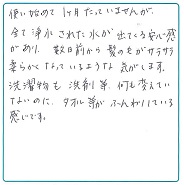 使い始めて1ヶ月たっていませんが、
全て浄水された水が出てくる安心感
があり、数日前から髪の毛がサラサラ
柔らかくなっているような気がします。
洗濯物も洗剤等何も変えてい
ないのに、タオル等がふんわりしている
感じです。